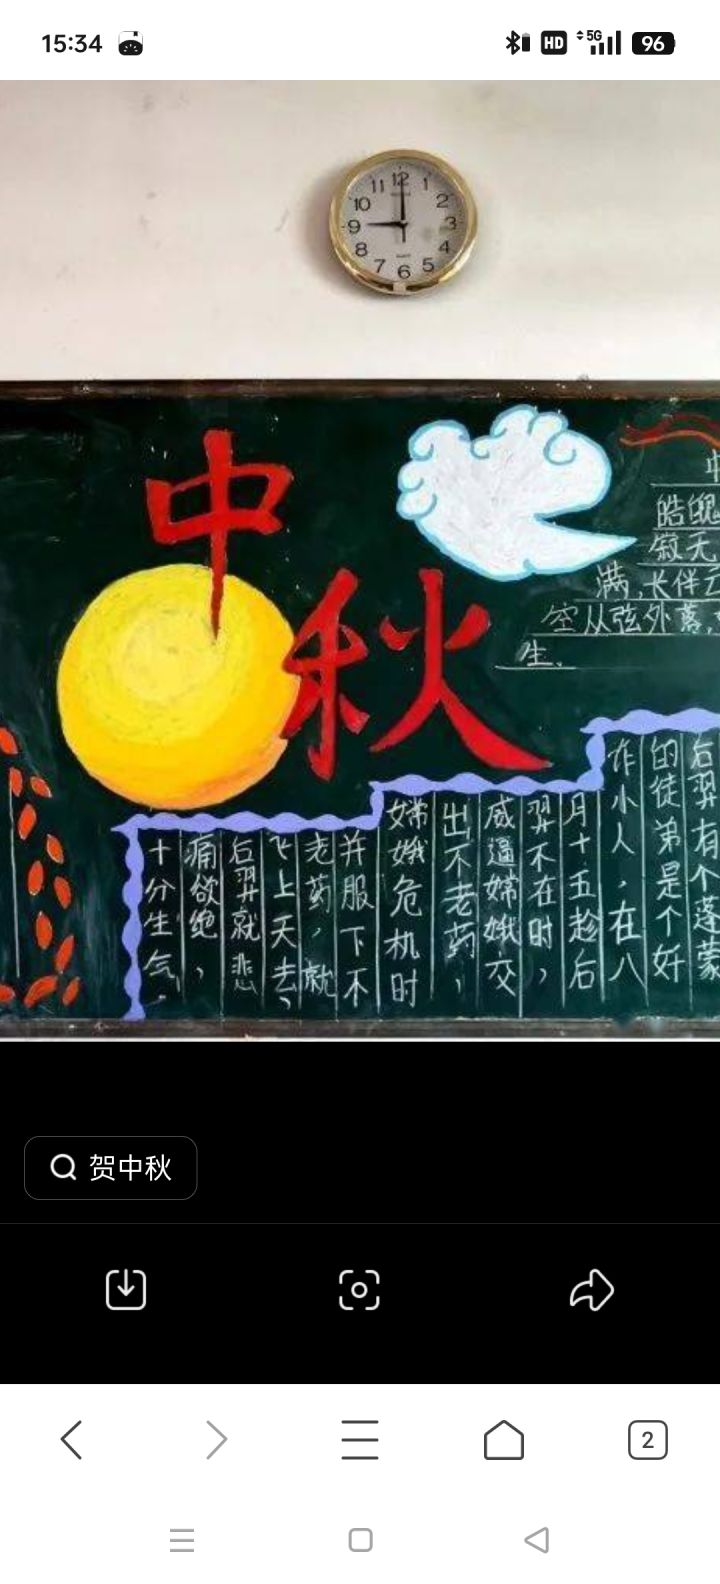 15:34
HD
5G
96
12
11
1
10
2
9
3
8
4
7
5
6
中秋
皓魄
寂无
满,长伴云
空从弦外落,
生.
后羿有个蓬蒙
的徒弟是个奸
诈小人,在八
月十五趁后
羿不在时,
威逼嫦娥交
出不老药,
嫦娥危机时
并服下不
老药,就
飞上天去、
后羿就悲
痛欲绝,
十分生气.
贺中秋
2